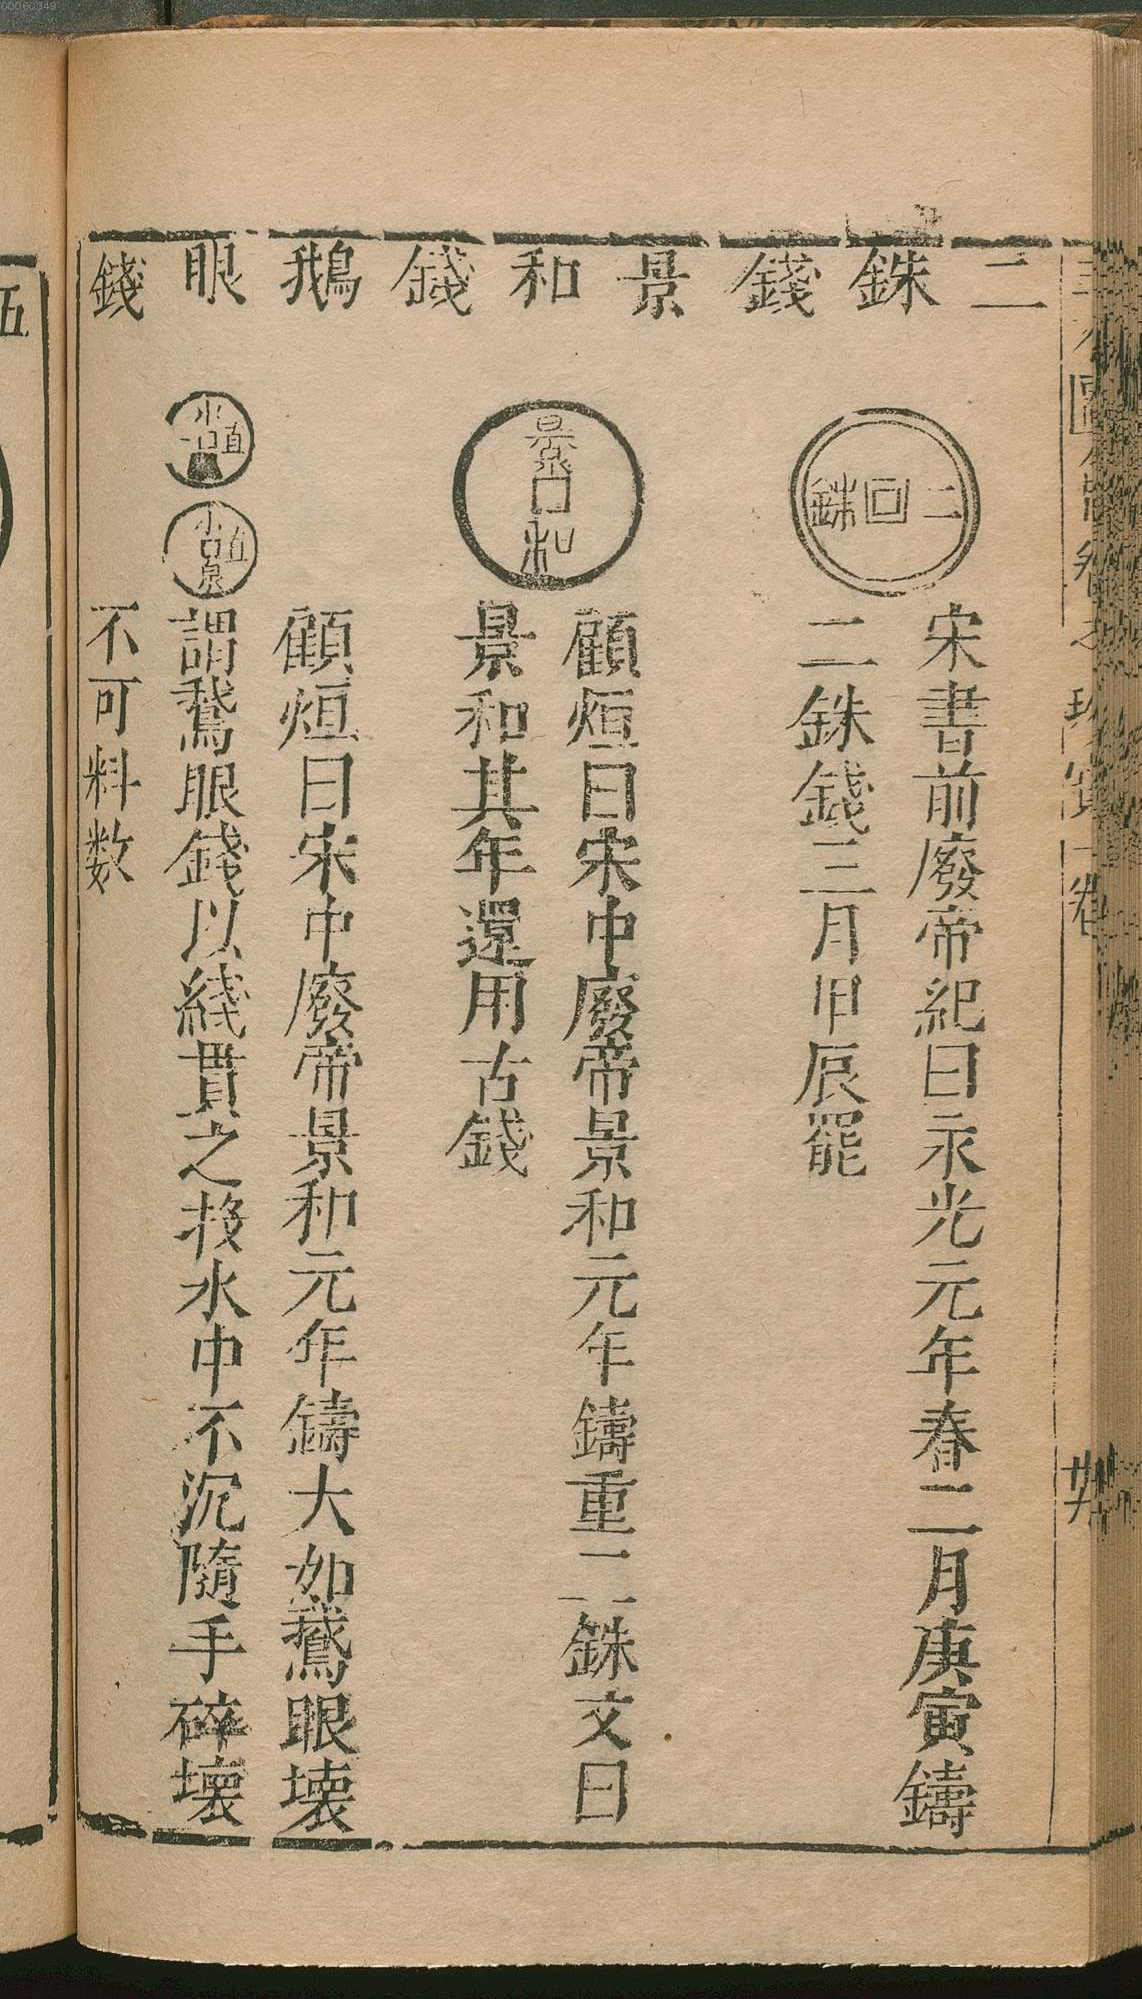 00060349
二銖錢景和錢鵝眼錢
二銖
宋書前廢帝紀曰永光元年春二月庚寅鑄
二銖錢三月甲辰罷
景和
顧烜曰宋中廢帝景和元年鑄重二銖文曰
景和其年還用古錢
顧烜曰宋中廢帝景和元年鑄大如鵞眼壊
謂鵞眼錢以綫貫之投水中不沉隨手碎壊
不可料数
五